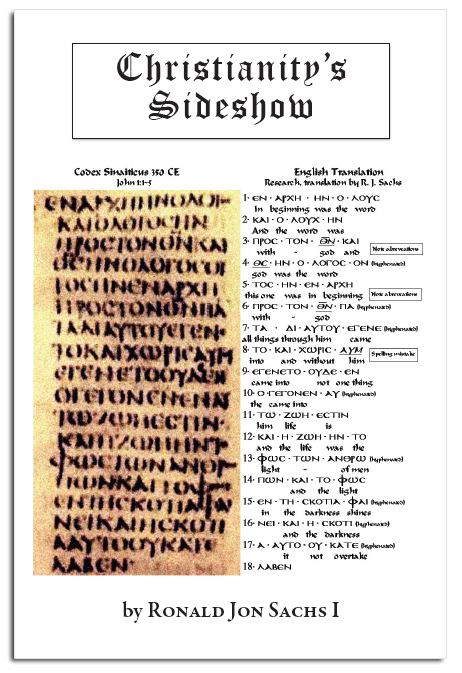 Christianity's
Sideshow
Codex Sinaiticus 350 CE
John 1:1-5
ΠΡΟϹΤΟΝΘΝΚΑΙ
ΤΟϹΗΝΕΝΑΡΧΗ
ΤΩΖΩΗΕϹΤΙΝ
ΚΑΙΗΖΩΗΗΝΤΟ
ΛΑΒΕΝ
English Translation
Research, translation by R. J. Sachs
1· ЄΝ · ΑΡΧΗ · ΗΝ · Ο · ΛΟΥϹ
In beginning was the word
2· ΚΑΙ · Ο · ΛΟΥΧ · ΗΝ
And the word was
3· ΠΡΟϹ · ΤΟΝ · ΘΝ · ΚΑΙ
with - god and
Note abreveations
4· ΘϹ · ΗΝ · Ο · ΛΟΓΟϹ · ΟΝ (hyphenword)
god was the word
5· ΤΟϹ · ΗΝ · ЄΝ · ΑΡΧΗ
this one was in beginning
Note abreveations
6· ΠΡΟϹ · ΤΟΝ · ΘΝ · ΠΑ (hyphenword)
with - god
7· ΤΑ · ΔΙ · ΑΥΤΟΥ · ЄΓЄΝЄ (hyphenword)
all things through him came
8· ΤΟ · ΚΑΙ · ΧΩΡΙϹ · ΑΥΜ
into and without him
Spelling mistake
9· ЄΓЄΝЄΤΟ · ΟΥΔЄ · ЄΝ
came into not one thing
10· Ο · ΓЄΓΟΝЄΝ · ΑΥ (hyphenword)
the came into
11· ΤΩ · ΖΩΗ · ЄϹΤΙΝ
him life is
12· ΚΑΙ · Η · ΖΩΗ · ΗΝ · ΤΟ
and the life was the
13· ΦΩϹ · ΤΩΝ · ΑΝΘΡΩ (hyphenword)
light - of men
14· ΠΩΝ · ΚΑΙ · ΤΟ · ΦΩϹ
and the light
15· ЄΝ · ΤΗ · ϹΚΟΤΙΑ · ΦΑΙ (hyphenword)
in the darkness shines
16· ΝЄΙ · ΚΑΙ · Η · ϹΚΟΤΙ (hyphenword)
and the darkness
17· Α · ΑΥΤΟ · ΟΥ · ΚΑΤЄ (hyphenword)
it not overtake
18· ΛΑΒЄΝ
by Ronald Jon Sachs I